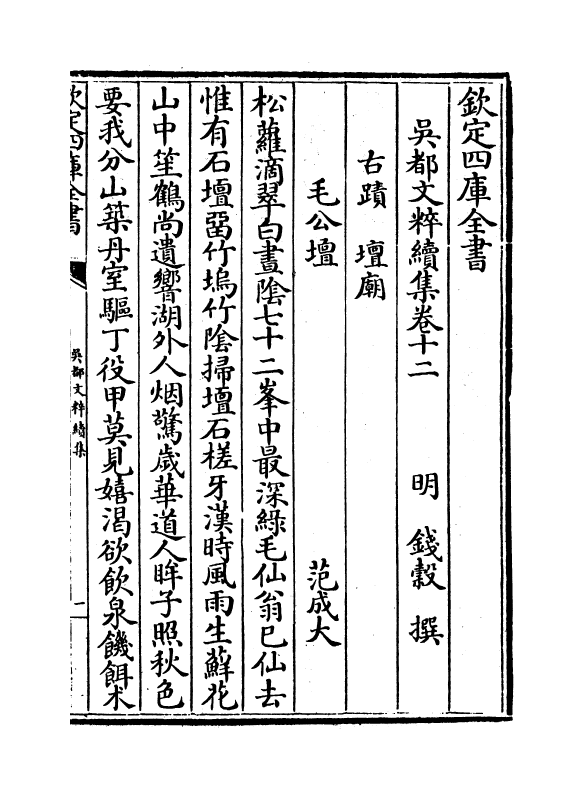 欽定四庫全書
吳都文粹續集卷十二 明 錢穀 撰
古蹟 壇廟
毛公壇 范成大
松蘿滴翠白晝陰七十二峯中最深綠毛仙翁已仙去
惟有石壇留竹塢竹陰掃壇石槎牙漢時風雨生蘚花
山中笙鶴尚遺響湖外人烟驚歲華道人眸子照秋色
要我分山築丹室驅丁役甲莫見嬉渴欲飲泉饑餌术
欽定四庫全書
吳都文粹續集
一